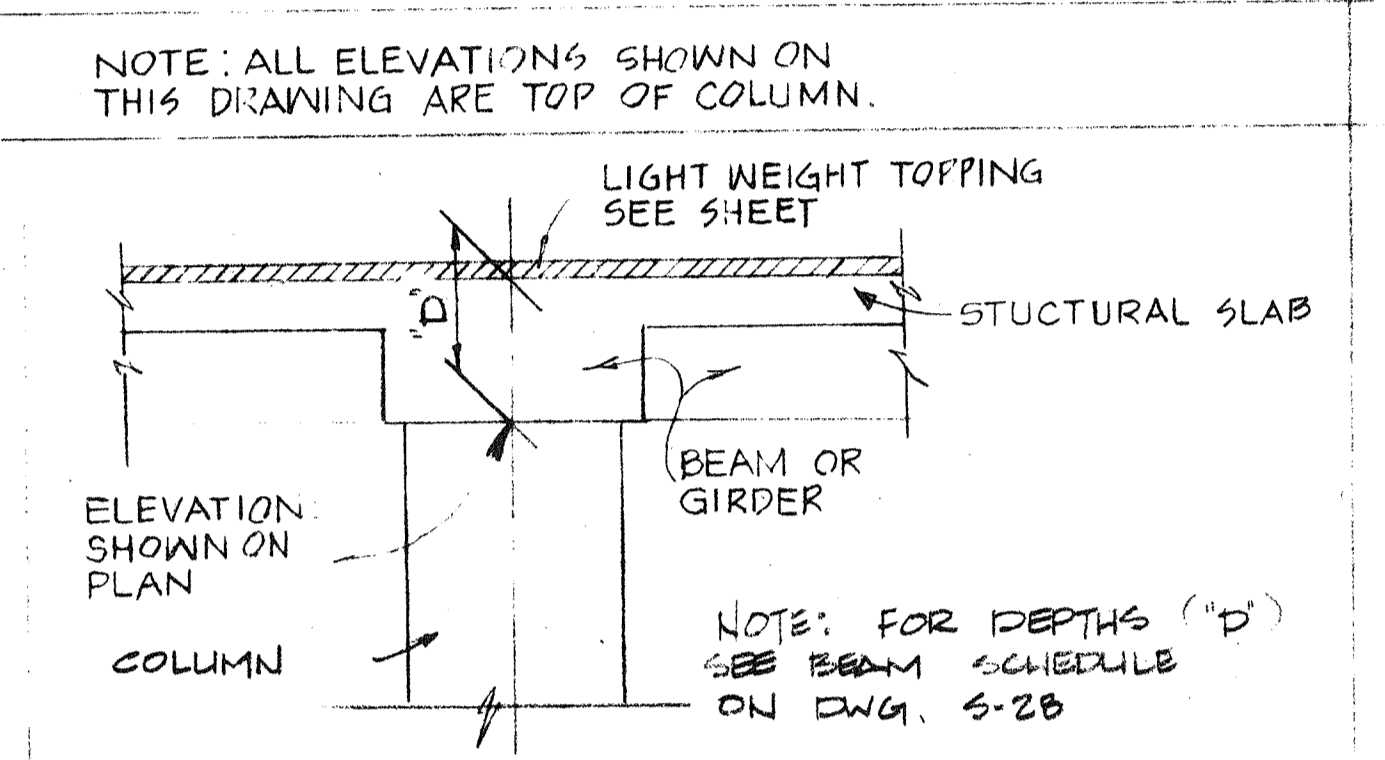 NOTE: ALL ELEVATIONS SHOWN ON
THIS DRAWING ARE TOP OF COLUMN.
LIGHT WEIGHT TOPPING
SEE SHEET
"D"
STUCTURAL SLAB
BEAM OR
GIRDER
ELEVATION
SHOWN ON
PLAN
COLUMN
NOTE: FOR DEPTHS ("D")
SEE BEAM SCHEDULE
ON DWG. S-28